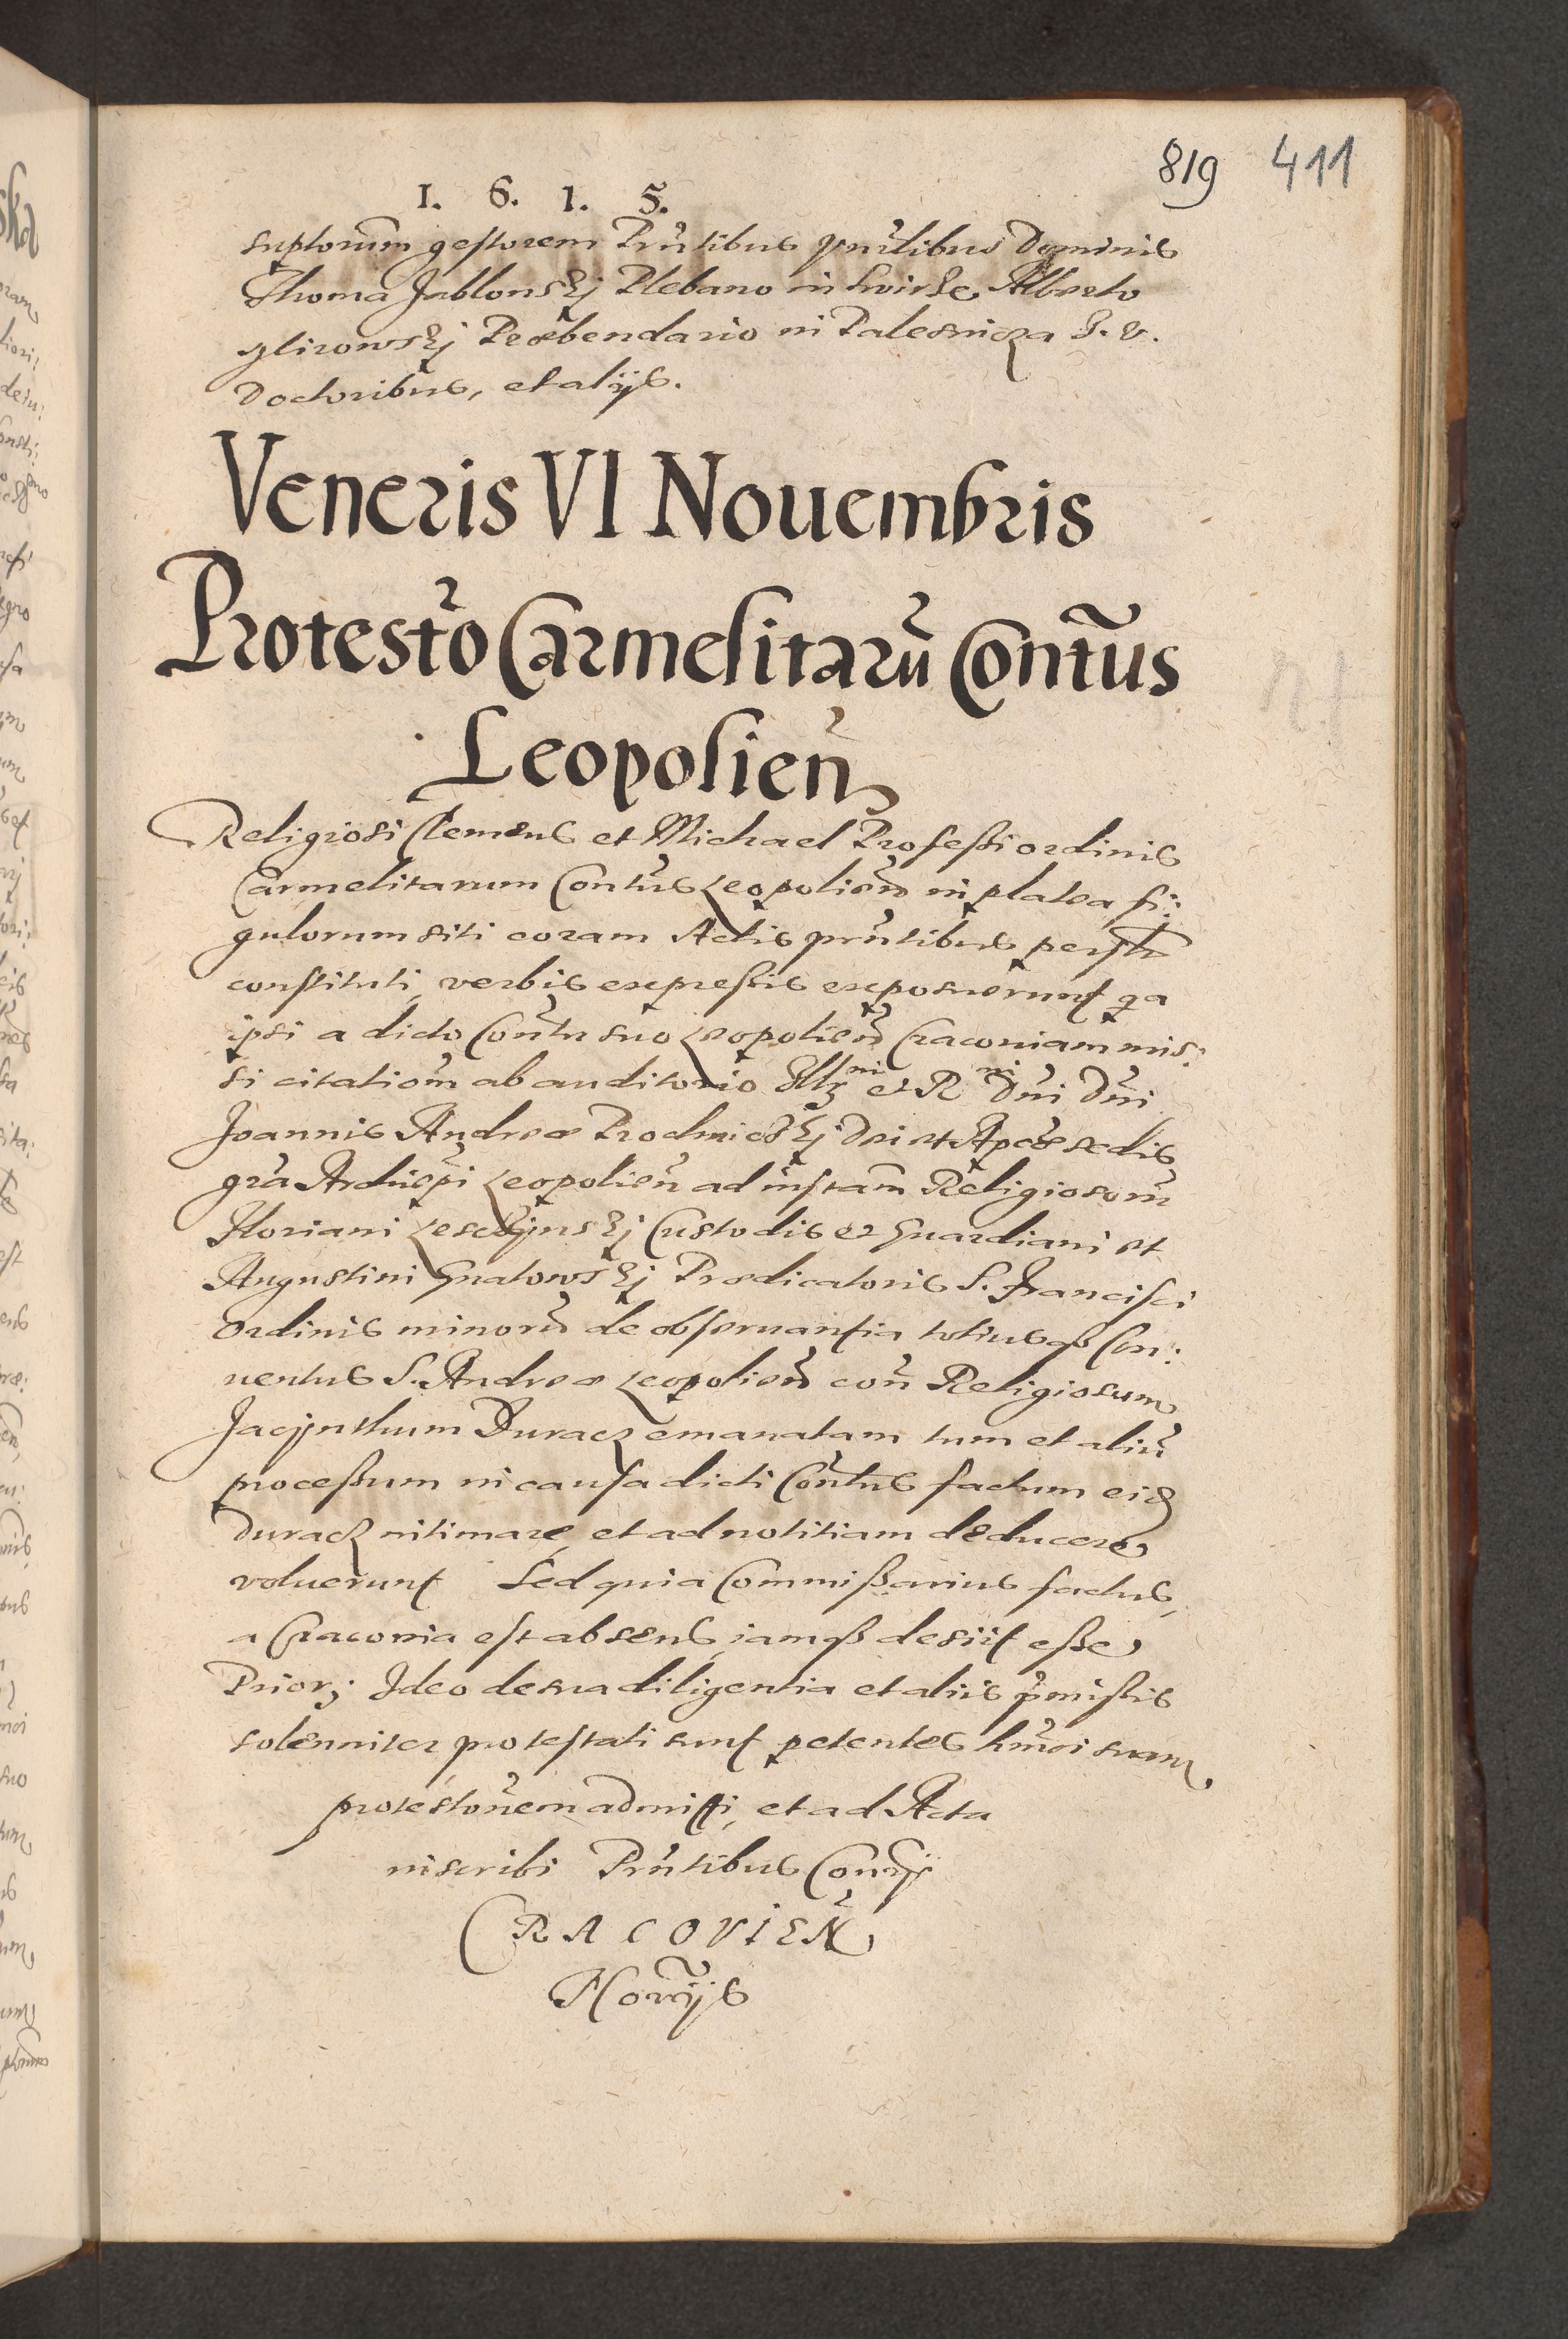 819 411
1. 6. 1. 5.
suptorum gestorem Prñtibus ibidem Dominis
Thoma Jablonskj Plebano in Swirze, Alberto
Præbendario in Palesnicza J. V.
Doctoribus, et alijs.
Veneris VI Nouembris
Protesto Carmelitarũ Contũs
Leopolien̄
Religiosi Clemens et Michael Professi ordinis
Carmelitarum Contũs Leopolien̄ in platea fi:
gulorum siti coram Actis prñtibus perslr
constituti, verbis expressis exposuerunt qa
ipsi a dicto Con̄tu suo Leopolien̄ Cracouiam mis:
si citatiom̄ ab auditorio Illmi et Rmi Dn̄i Dn̄i
Joannis Andreæ Prochniczkj Dei et Apcæ sedis
gr̄a Archiep̄i Leopolien̄ ad instam̄ Religiosorm̄
Floriani Lesczynskj Custodis et Guardiani et
Augustini Gnatowskj Prædicatoris S. Francisci
Ordinis minorũ de obseruantia totiusq3 Con:
uentus S. Andreæ Leopolien̄ con̄ Religiosum
Jacynthum Duracz emanatam tum et aliũ
processum in causa dicti Con̄tus factum eid
Duracz intimare, et ad notitiam deducere
voluerunt Sed quia Commissarius factus,
a Cracouia est absens, iamq3 desijt esse
Prior; Ideo de sua diligentia et aliis p̄missis
solenniter protestati sunt petentes hm̄oi suam
protestōnem admitti, et ad Acta
inscribi Prñtibus Con̄rijs
CRACOVIEN̄
Nor̄ijs